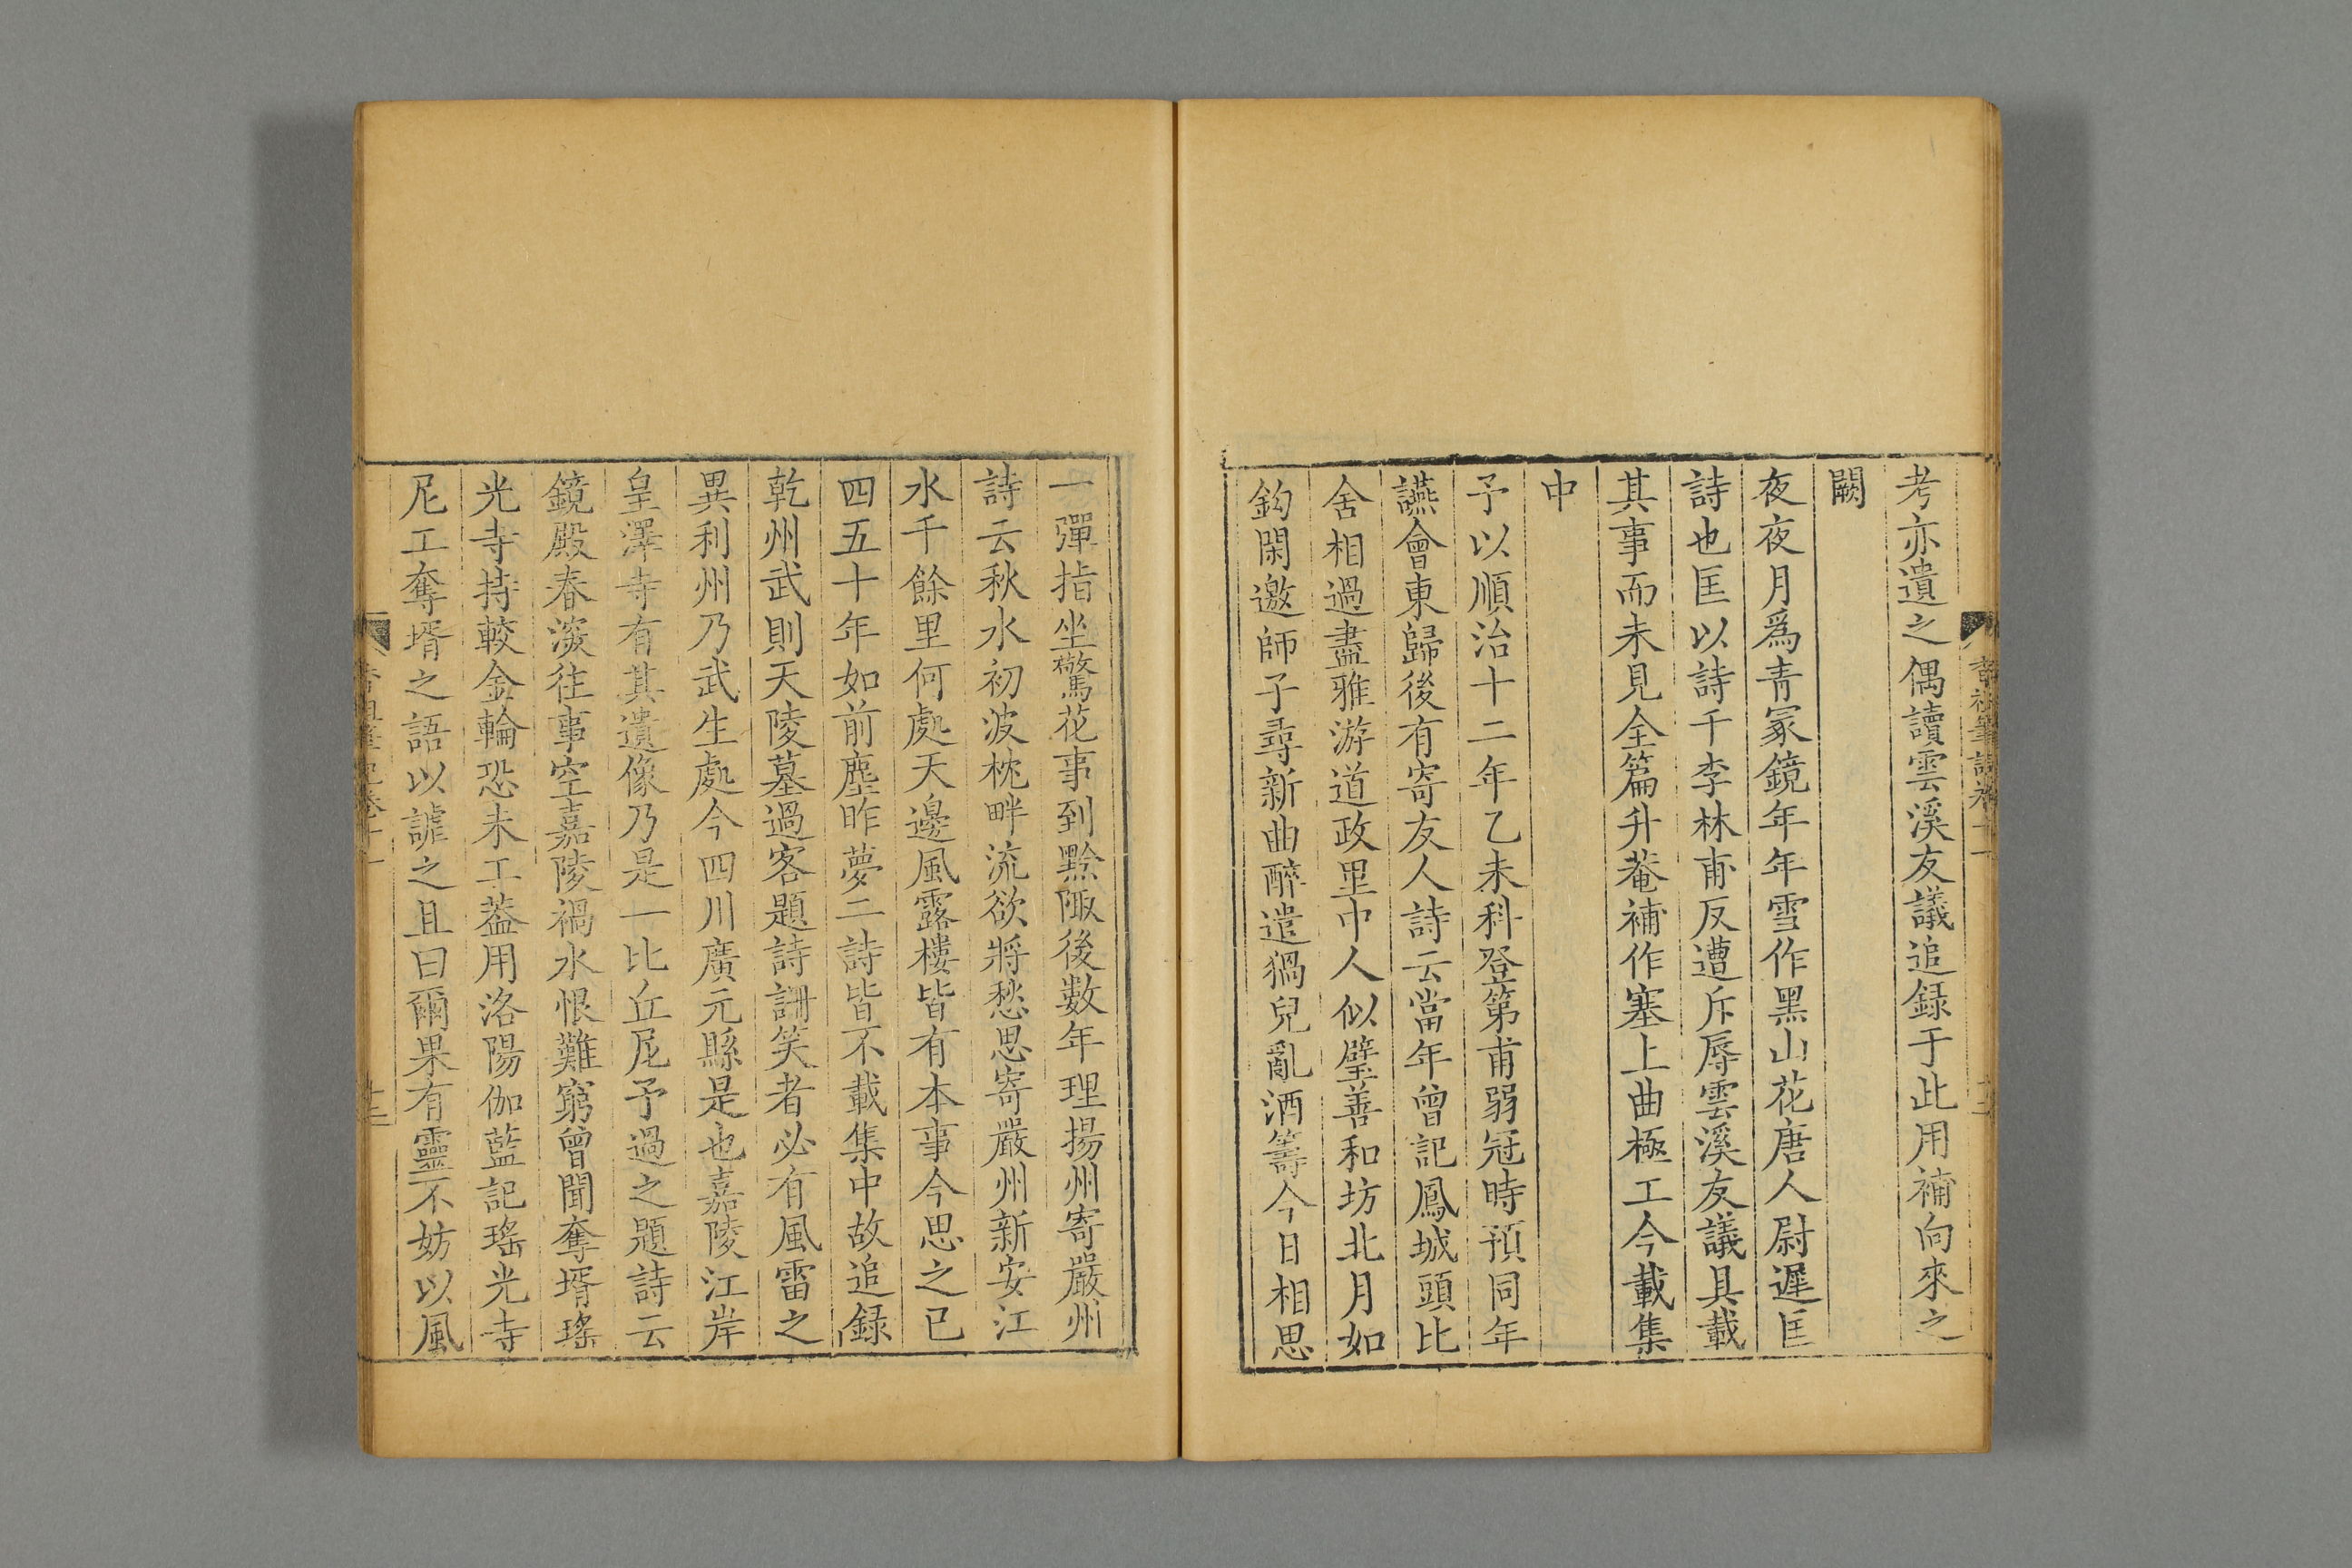 考亦遺之偶讀雲溪友議追録于此用補向來之
闕
夜夜月爲青冢鏡年年雪作黑山花唐人尉遲匡
詩也匡以詩干李林甫反遭斥辱雲溪友議具載
其事而未見全篇升菴補作塞上曲極工今載集
中
予以順治十二年乙未科登第甫弱冠時預同年
讌會東歸後有寄友人詩云當年曾記鳳城頭比
舍相過盡雅游道政里中人似璧善和坊北月如
鈎閑邀師子尋新曲醉遣猧兒亂酒籌今日相思
一彈指坐驚花事到黔陬後数年理揚州寄嚴州
詩云秋水初波枕畔流欲將愁思寄嚴州新安江
水千餘里何處天邊風露樓皆有本事今思之已
四五十年如前塵昨夢二詩皆不載集中故追録
乾州武則天陵墓過客題詩訕笑者必有風雷之
異利州乃武生處今四川廣元縣是也嘉陵江岸
皇澤寺有其遺像乃是一比丘尼予過之題詩云
鏡殿春深往事空嘉陵禍水恨難窮曾聞奪壻瑤
光寺持較金輪恐未工葢用洛陽伽藍記瑤光寺
尼工奪壻之語以謔之且曰爾果有靈不妨以風